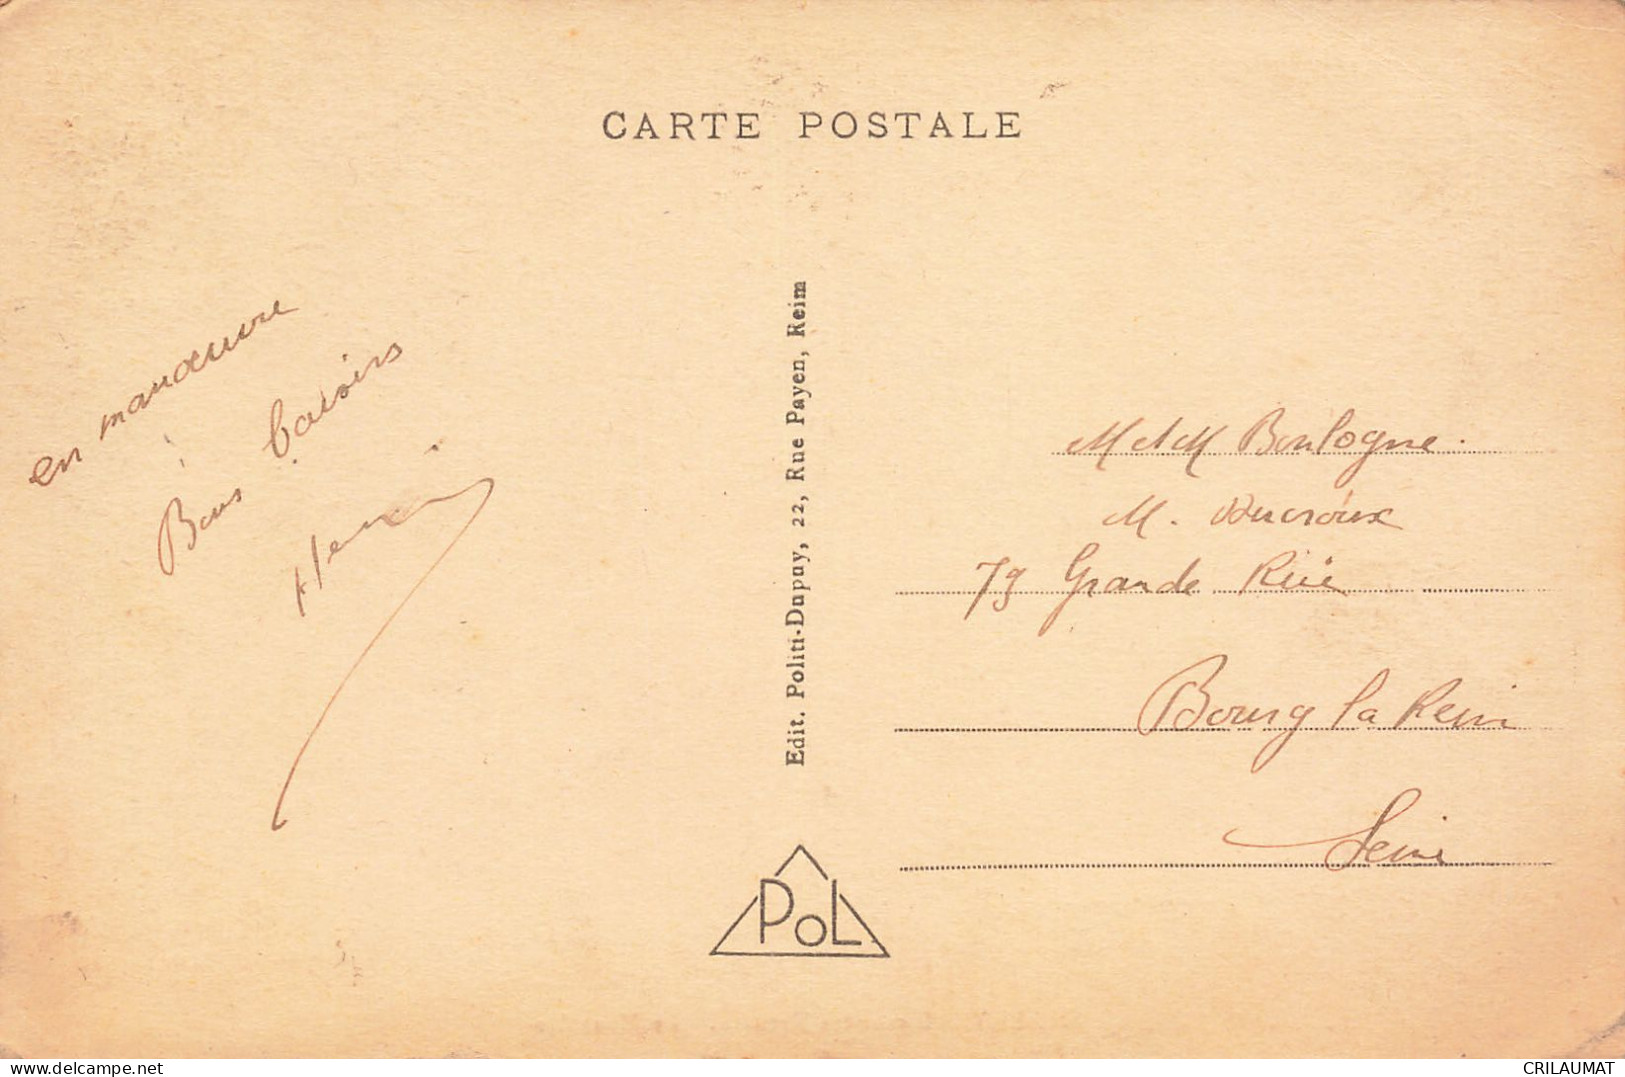 CARTE POSTALE
en manœuvre
Bons baisirs
Henri
Edit. Politi-Dupuy, 22, Rue Payen, Reim
PoL
M et M Boulogne.
M. Ducroux
79 Grande Rüe
Bourg la Rein
Seine
delcampe.net
CRILAUMAT